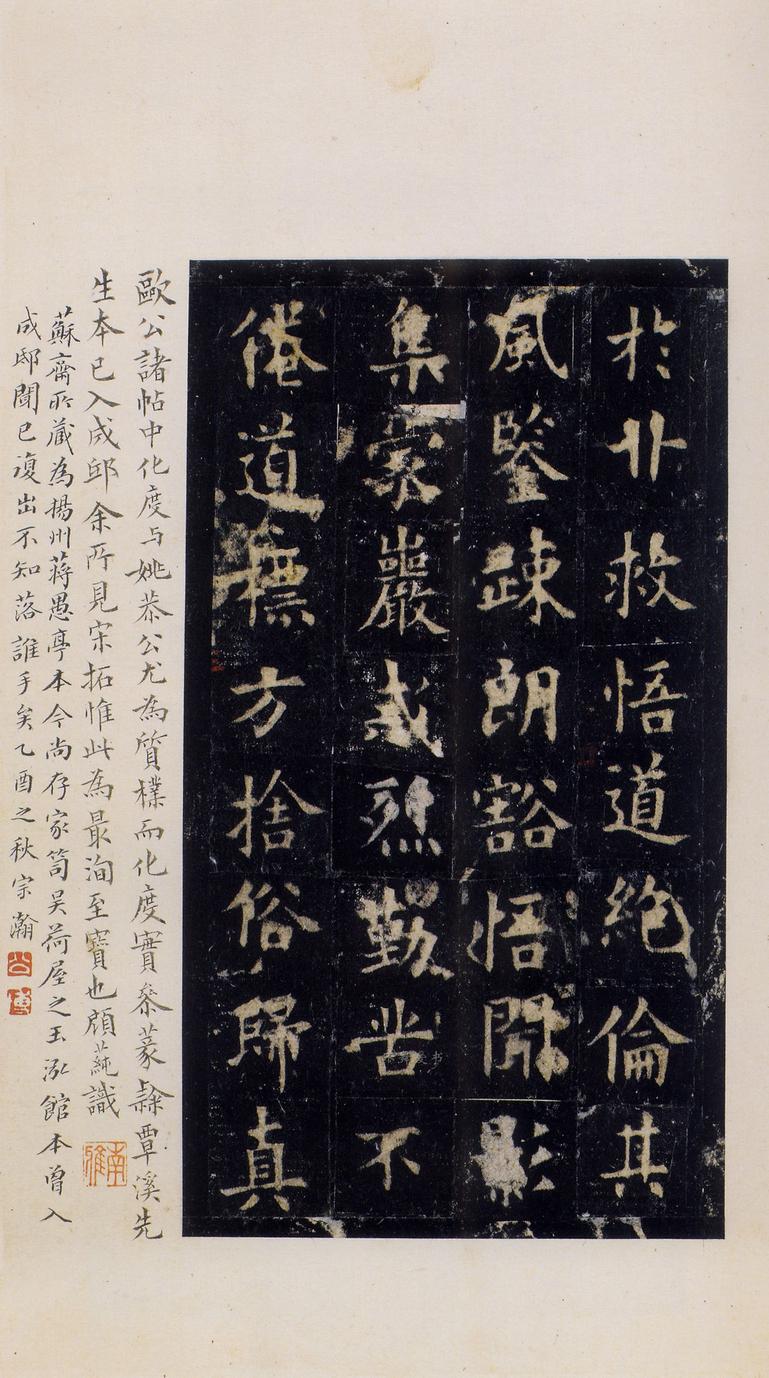 於卄救悟道絶倫其
風鑒疎朗豁悟開影
集窮巖或烈勤苦不
倦道標方捨俗歸真
歐公諸帖中化度与姚恭公尤為質樸而化度實參篆隸覃溪先
生本已入成邸余所見宋拓惟此為最洵至寶也顧蒓識
南雅
蘇齋所藏為揚州蔣愚亭本今尚存家笥吳荷屋之玉泓館本曾入
成邸聞已復出不知落誰手矣乙酉之秋宗瀚
公博